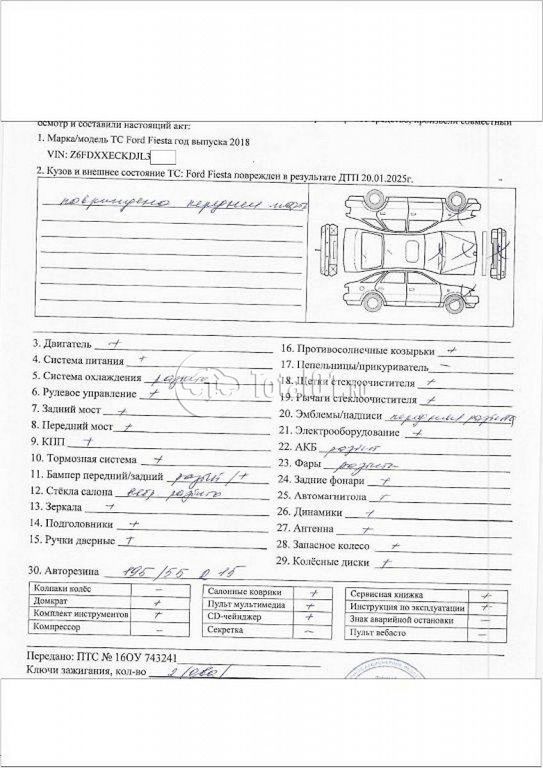 осмотр и составили настоящий акт:
1. Марка/модель ТС Ford Fiesta год выпуска 2018
VIN: Z6FDXXECKDJL3
2. Кузов и внешнее состояние ТС: Ford Fiesta поврежден в результате ДТП 20.01.2025г.
повреждена передняя часть
3. Двигатель +
4. Система питания +
5. Система охлаждения разбит
6. Рулевое управление +
7. Задний мост +
8. Передний мост +
9. КПП +
10. Тормозная система +
11. Бампер передний/задний разбит / +
12. Стёкла салона разбито
13. Зеркала +
14. Подголовники +
15. Ручки дверные +
16. Противосолнечные козырьки +
17. Пепельницы/прикуриватель –
18. Щетки стеклоочистителя +
19. Рычаги стеклоочистителя +
20. Эмблемы/надписи передняя разбита
21. Электрооборудование +
22. АКБ разбит
23. Фары разбиты
24. Задние фонари +
25. Автомагнитола +
26. Динамики +
27. Антенна +
28. Запасное колесо +
29. Колёсные диски +
30. Авторезина 195/55 R 15
Колпаки колёс –
Домкрат +
Комплект инструментов +
Компрессор –
Салонные коврики +
Пульт мультимедиа +
CD-чейнджер +
Секретка –
Сервисная книжка +
Инструкция по эксплуатации +
Знак аварийной остановки –
Пульт вебасто –
Передано: ПТС № 16ОУ 743241
Ключи зажигания, кол-во 2 (два)